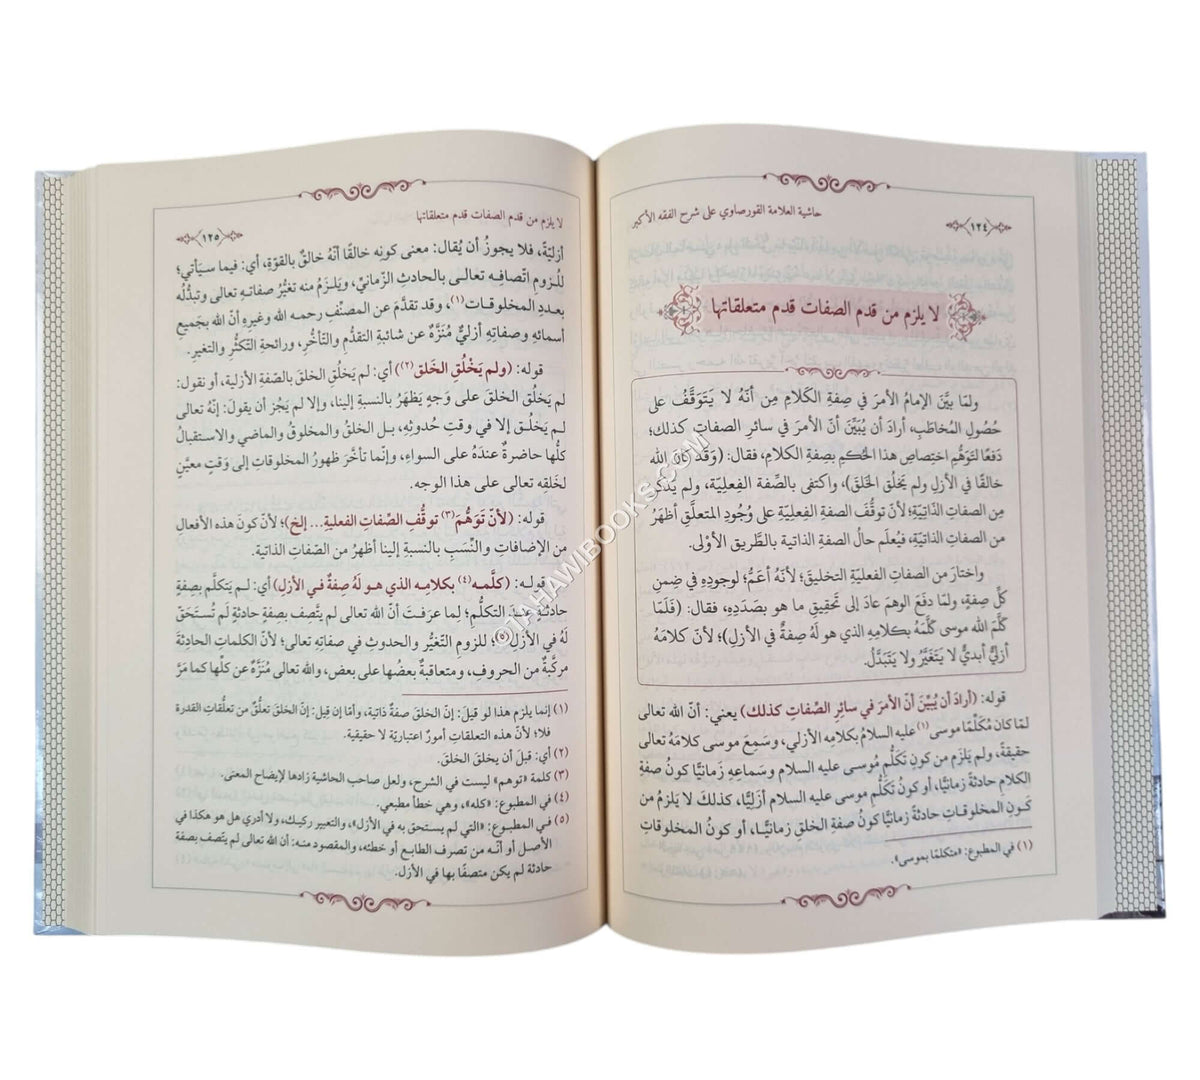 حاشية العلامة القورصاوي على شرح الفقه الأكبر
١٢٤
لا يلزم من قدم الصفات قدم متعلقاتها
ولمّا بيَّنَ الإمامُ الأمرَ في صِفةِ الكَلامِ مِن أنّهُ لا يَتَوَقَّفُ على
حُصُولِ المُخاطَبِ، أرادَ أن يُبَيِّنَ أنّ الأمرَ في سائرِ الصفاتِ كذلك؛
دَفعًا لتَوَهُّمِ اختِصاصِ هذا الحُكمِ بصِفةِ الكلامِ، فقال: (وَقَد كانَ الله
خالقًا في الأزلِ ولم يَخلُق الخَلقَ)، واكتفى بالصِّفة الفِعليّة، ولم يَذكُر
مِن الصفاتِ الذّاتيّة؛ لأنّ توقُّفَ الصفةِ الفِعليّةِ على وُجُودِ المتعلَّق أظهَرُ
من الصفاتِ الذاتيّة، فيُعلَم حالُ الصفةِ الذاتية بالطَّريق الأوْلى.
واختارَ من الصفاتِ الفعليّة التخليقَ؛ لأنّهُ أعَمُّ؛ لوجودِهِ في ضِمنِ
كلِّ صِفةٍ، ولمّا دفَعَ الوهمَ عادَ إلى تَحقِيقِ ما هو بصَدَدِهِ، فقال: (فَلَمّا
كلَّمَ الله موسى كلَّمَهُ بكلامِهِ الذي هو لَهُ صِفةٌ في الأزلِ)؛ لأنّ كلامَهُ
أزليٌّ أبديٌّ لا يَتَغَيَّرُ ولا يَتَبَدَّلُ.
قوله: (أرادَ أن يُبيِّنَ أنّ الأمرَ في سائرِ الصِّفاتِ كذلك) يعني: أنّ الله تعالى
لمّا كان مُكَلِّمًا موسى(١) عليه السلامُ بكلامِهِ الأزلي، وسَمِعَ موسى كلامَهُ تعالى
حقيقةً، ولم يَلزَم من كونِ تكَلُّمِ مُوسى عليه السلام وسَماعِهِ زَمانيًّا كونُ صفةِ
الكلامِ حادثةً زمانيًّا، أو كونُ تكَلُّمِ موسى عليه السلام أزَليًّا، كذلكَ لا يَلزمُ من
كَونِ المخلوقاتِ حادثةً زمانيًّا كونُ صفةِ الخلقِ زمانيًّا، أو كونُ المخلوقاتِ
(١) في المطبوع: «متكلمًا بموسى».
لا يلزم من قدم الصفات قدم متعلقاتها
١٢٥
أزليّةً، فلا يجوزُ أن يُقالَ: معنى كونِه خالقًا أنّهُ خالقٌ بالقوّةِ، أي: فيما سيَأتي؛
للُزومِ اتّصافِه تعالى بالحادثِ الزّمانيِّ، ويَلزَمُ منه تغيُّرُ صفاتِه تعالى وتبدُّلُه
بعددِ المخلوقاتِ(١)، وقد تقدَّمَ عن المصنِّفِ رحمه الله وغيرِهِ أنّ الله بجَميعِ
أسمائهِ وصفاتِه أزليٌّ مُنَزَّهٌ عن شائبةِ التقدُّمِ والتّأخُّرِ، ورائحةِ التّكثُّرِ والتغيرِ.
قوله: (ولم يَخْلُقِ الخَلق(٢)) أي: لم يَخلُقِ الخلقَ بالصّفةِ الأزلية، أو نقول:
لم يَخلُق الخلقَ على وَجهٍ يَظهَرُ بالنسبةِ إلينا، وإلا لم يَجُز أن يقولَ: إنّه تعالى
لم يَخلُق إلا في وقتِ حُدوثِهِ، بل الخلقُ والمخلوقُ والماضي والاستقبالُ
كلُّها حاضرةٌ عندَهُ على السواءِ، وإنّما تأخّرَ ظهورُ المخلوقاتِ إلى وَقتٍ معيَّنٍ
لخَلقِه تعالى على هذا الوجه.
قوله: (لأنّ تَوَهُّمَ(٣) توقُّفِ الصِّفاتِ الفعلية... إلخ)؛ لأنّ كونَ هذه الأفعالِ
من الإضافاتِ والنِّسَبِ بالنسبةِ إلينا أظهرُ من الصّفاتِ الذاتية.
قوله: (كلَّمه(٤) بكلامِه الذي هو لَهُ صِفةٌ في الأزلِ) أي: لم يَتكلَّم بصِفةٍ
حادثةٍ عندَ التكلُّمِ؛ لما عرَفتَ أنّ الله تعالى لم يتّصف بصفةٍ حادثةٍ لم تُستَحَقّ
لَهُ في الأزَلِ(٥)؛ للزومِ التّغيُّرِ والحدوثِ في صفاتِه تعالى؛ لأنّ الكلماتِ الحادثةَ
مركَّبةٌ من الحروفِ، ومتعاقبةٌ بعضُها على بعض، والله تعالى مُنَزَّهٌ عن كلِّها كما مَرَّ
(١) إنما يلزم هذا لو قيل: إنّ الخلقَ صفةٌ ذاتية، وأمّا إن قِيل: إنّ الخلقَ تعلُّقٌ من تعلُّقاتِ القدرة
فلا؛ لأنّ هذه التعلقاتِ أمورٌ اعتباريّة لا حقيقية.
(٢) أي: قبلَ أن يخلقَ الخلقَ.
(٣) كلمة «توهم» ليست في الشرح، ولعل صاحب الحاشية زادها لإيضاح المعنى.
(٤) في المطبوع: «كله»، وهي خطأ مطبعي.
(٥) في المطبوع: «التي لم يستحق به في الأزل»، والتعبير ركيك، ولا أدري هل هو هكذا في
الأصل أو أنّه من تصرف الطابع أو خطئه، والمقصود منه: أن الله تعالى لم يتّصف بصفة
حادثة لم يكن متصفًا بها في الأزل.
TAHAWIBOOKS.COM